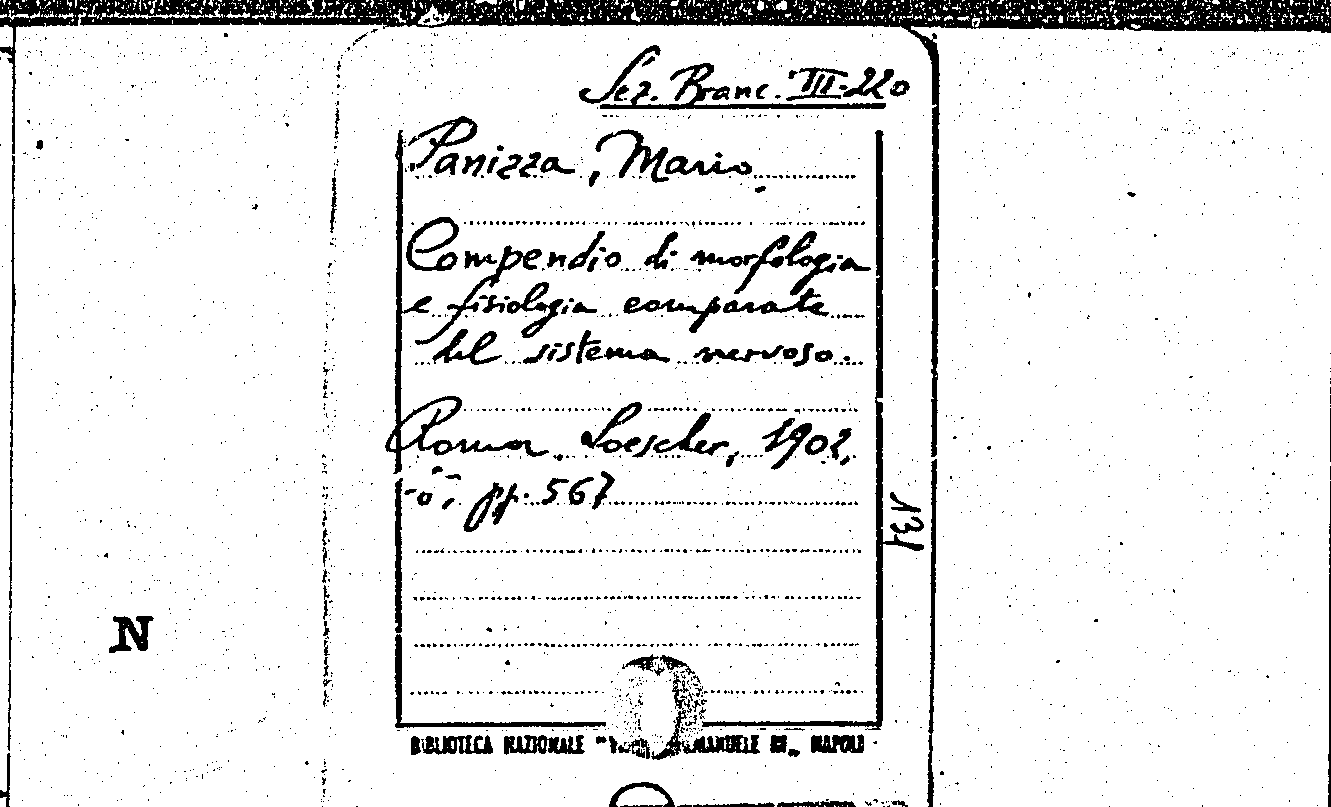 Sez. Branc. III-220
Panizza, Mario.
Compendio di morfologia
e fisiologia comparate
del sistema nervoso.
Roma. Loescher, 1902,
-8°, pp. 567
131
N
BIBLIOTECA NAZIONALE " EMANUELE III„ NAPOLI